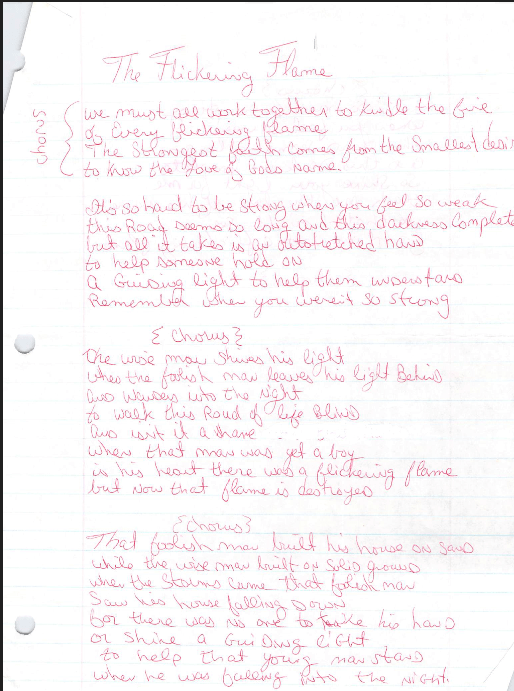 The Flickering Flame
chorus
we must all work together to kindle the fire
of Every flickering flame
The Strongest faith comes from the Smallest desi
to know the love of Gods name.
It's so hard to be Strong when you feel so weak
this Road seems so long and this darkness Complete
but all it takes is an outstretched hand
to help someone hold on
a Guiding light to help them understand
Remember when you weren't so strong
{ Chorus }
The wise man shines his light
when the foolish man leaves his light Behind
and wanders into the night
to walk this Road of life Blind
and isn't it a shame
when that man was yet a boy
in his heart there was a flickering flame
but now that flame is destroyed
{ Chorus }
That foolish man built his house on sand
while the wise man built on Solid ground
when the Storms Came that foolish man
Saw his house falling Down
For there was no one to take his hand
or Shine a Guiding light
to help that young man stand
when he was falling into the night.